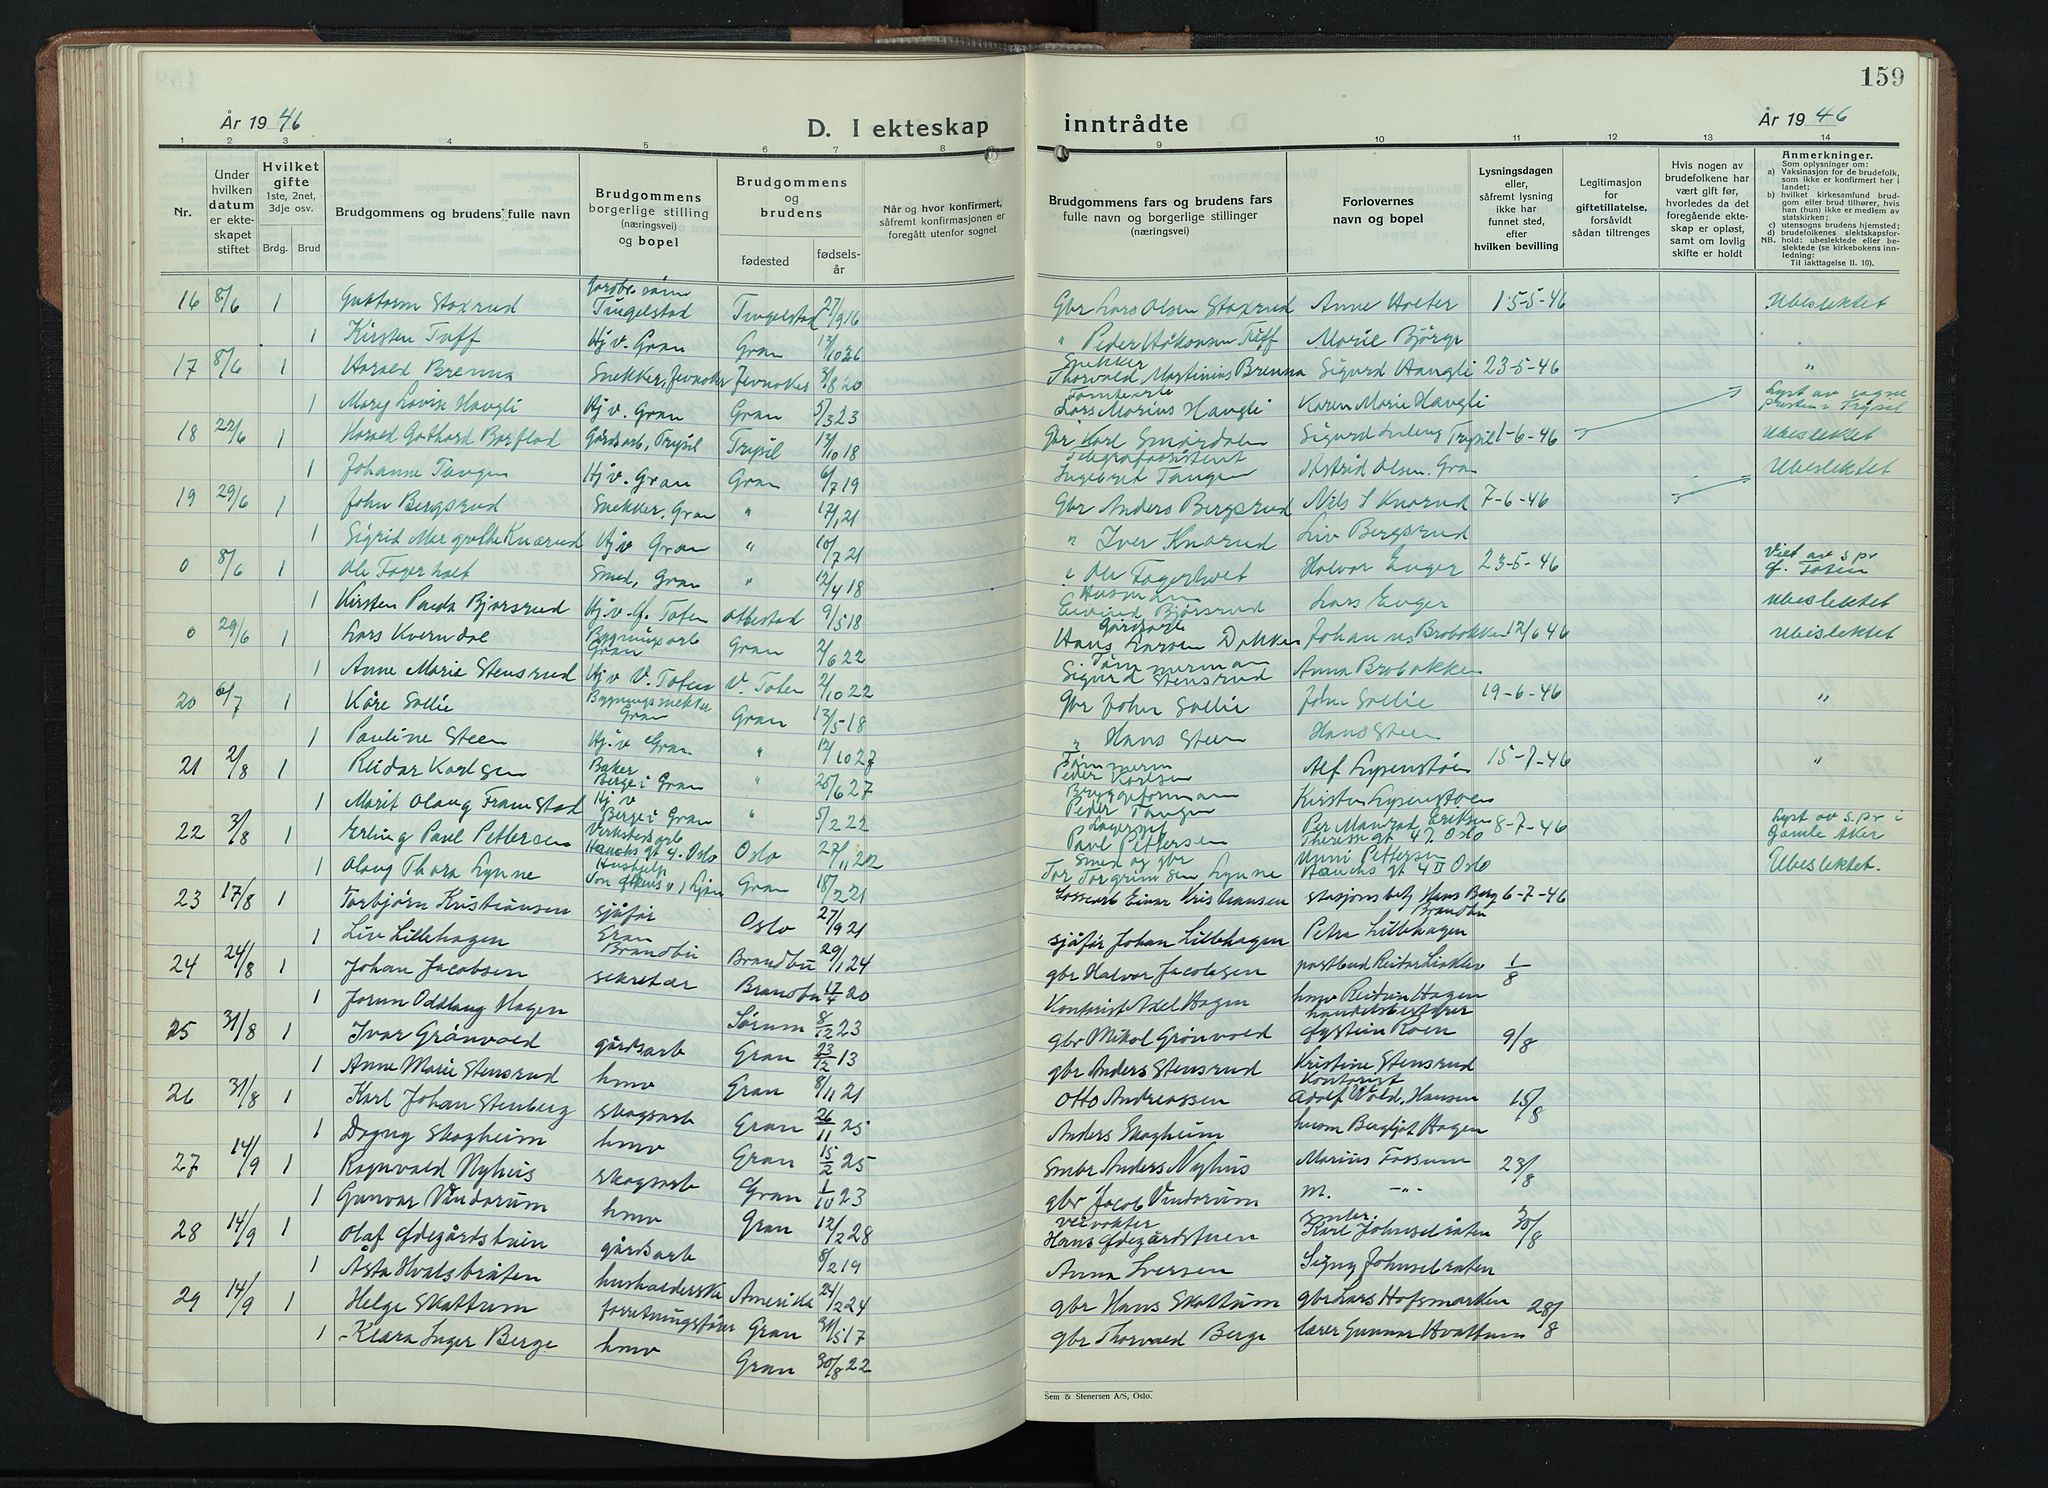 159
År 1946
D. I ekteskap inntrådte
År 1946
1 2 3 4 5 6 7 8 9 10 11 12 13 14
Nr.
Under hvilken datum er ekteskapet stiftet
Hvilket gifte 1ste, 2net, 3dje osv.
Brdg. Brud
Brudgommens og brudens fulle navn
Brudgommens borgerlige stilling (næringsvei) og bopel
Brudgommens og brudens
fødested
fødselsår
Når og hvor konfirmert, såfremt konfirmasjonen er foregått utenfor sognet
Brudgommens fars og brudens fars fulle navn og borgerlige stillinger
Forlovernes navn og bopel
Lysningsdagen eller, såfremt lysning ikke har funnet sted, efter hvilken bevilling
Legitimasjon for giftetillatelse, forsåvidt sådan tiltrenges
Hvis nogen av brudefolkene har vært gift før, hvorledes da det foregående ekteskap er opløst, samt om lovlig skifte er holdt
Anmerkninger.
Som oplysninger om:
a) Vaksinasjon for de brudefolk, som ikke er konfirmert her i landet;
b) hvilket kirkesamfund brudgom eller brud tilhører, hvis han (hun) ikke er medlem av statskirken;
c) utensogns brudens hjemsted;
d) brudefolkenes slektskapsforhold: ubeslektede eller beslektede (se kirkebokens innledning:
NB.
Til iakttagelse II. 10).
16 8/6 1 Guttorm Staxrud Gardbr. søn Tingelstad Tingelstad 27/9 16 Gbr Lars Olsen Staxrud Anne Holter 15-5-46 Ubeslektet
1 Kirsten Tuff Hj v. Gran Gran 13/10 26 " Peder Håkonsen Tuff Marie Björge
17 8/6 1 Harald Brenna Snekker, Jevnaker Jevnaker 3/8 20 Snekker Thorvald Martinius Brenna Sigurd Haugli 23-5-46 "
1 Mary Lovise Haugli Hj v. Gran Gran 5/3 23 Lars Marius Haugli Karen Marie Haugli Lyst av sognepresten i Trysil
18 22/6 1 Harald Gothard Borflod Gårdsarb, Trysil Trysil 13/10 18 Gbr Karl Smørdalen Sigurd Trysil 1-6-46 Ubeslektet
1 Johanne Tangen Hj v. Gran Gran 6/7 19 Telegrafassistent Ingebret Tangen Astrid Olsen, Gran Ubeslektet
19 29/6 1 John Bergsrud Snekker, Gran " 17/1 21 Gbr Anders Bergsrud Nils S Knarud 7-6-46
1 Sigrid Margrethe Knarud Hj v Gran " 10/7 21 " Iver Knarud Liv Bergsrud
0 8/6 1 Ole Fagerholt Smed, Gran " 12/4 18 " Ole Fagerholt Halvor Enger 23-5-46 Viet av s.pr Ø. Toten
1 Kirsten Paula Bjørsrud Hj.v. Ø. Toten Ottestad 9/5 18 Husmann Eivind Bjørsrud Lars Enger Ubeslektet
0 29/6 1 Lars Kverndal Bygningsarb Gran Gran 2/6 22 Hans Larsen Dokken Johannes Brobakken 12/6 46 Ubeslektet
1 Anne Marie Stensrud Hj v V. Toten V. Toten 2/10 22 Tømmermann Sigurd Stensrud Anna Brobakken
20 6/7 1 Kåre Sollie Bygningssnekker Gran Gran 13/5 18 Gbr John Sollie John Sollie 19-6-46 "
1 Pauline Steen Hj.v Gran " 12/10 27 " Hans Steen Hans Steen
21 2/8 1 Reidar Karlsen Baker Berge i Gran " 20/6 27 Tømmerm Peder Karlsen Alf Lysenstøen 15-7-46 "
1 Marit Olaug Framstad Hj v Berge i Gran " 5/2 22 Byggeformann Peder Tangen Kirsten Lysenstøen
22 3/8 1 Erling Paul Pettersen Verkstedsarb Hauchs gt 4. Oslo Oslo 27/11 202 Paul Pettersen Per Eriksen Theresegt 47. Oslo 8-7-46 Lyst av s.pr i Gamle Aker
1 Olaug Thora Lynne Hushjelp Gran 18/2 21 Smed og gbr Tor Torgrimsen Lynne Unni Pettersen Hauchs gt 4 II Oslo Ubeslektet.
23 17/8 1 Torbjørn Kristiansen sjåfør Gran Oslo 27/9 21 Einar Kristiansen stasjonsbetj Hans Berg Brandbu 6-7-46
1 Liv Lillehagen Brandbu Brandbu 29/1 24 sjåfør Johan Lillehagen Petra Lillehagen
24 24/8 1 Johan Jacobsen sekretær Brandbu 17/4 20 gbr Halvor Jacobsen postbud Reidar 1/8
1 Jorun Oddlaug Hagen Sørum 8/12 23 Kontorist Axel Hagen hmv Reidun Hagen
25 31/8 1 Ivar Grönvold gårdsarb Gran 23/12 13 gbr Mikal Grönvold handelsbestyrer Øystein Roen 9/8
1 Anne Marie Stensrud hmv Gran 8/11 21 gbr Anders Stensrud Kristine Stensrud
26 31/8 1 Karl Johan Stenberg skogsarb Gran 26/11 25 Otto Andreassen Kontorist Adolf Wold, Hansen 15/8
1 Dagny Skogheim hmv Gran 15/2 25 Anders Skogheim husm Bergljot Hagen
27 14/9 1 Ragnvald Nyhus skogsarb Gran 1/10 23 smbr Anders Nyhus Marius Fossum 23/8
1 Gunvor Vindorum hmv Gran 12/2 28 gbr Jacob Vindorum M. -"-
28 14/9 1 Olaf Ødegårdstuen gårdsarb 8/2 19 veivokter Hans Ødegårdstuen smbr. Karl Johnselråten 30/8
1 Åsta Hvalsbråten husholderske Amerika 24/2 24 Anna Iversen Signy Johnselråten
29 14/9 1 Helge Skattum forretningsfører Gran 31/5 17 gbr Hans Skattum gbr Lars Hofsmarken 28/8
1 Klara Inger Berge hmv Gran 30/8 22 gbr Thorvald Berge lærer Gunnar Hvattum
Sem & Stenersen A/S, Oslo.